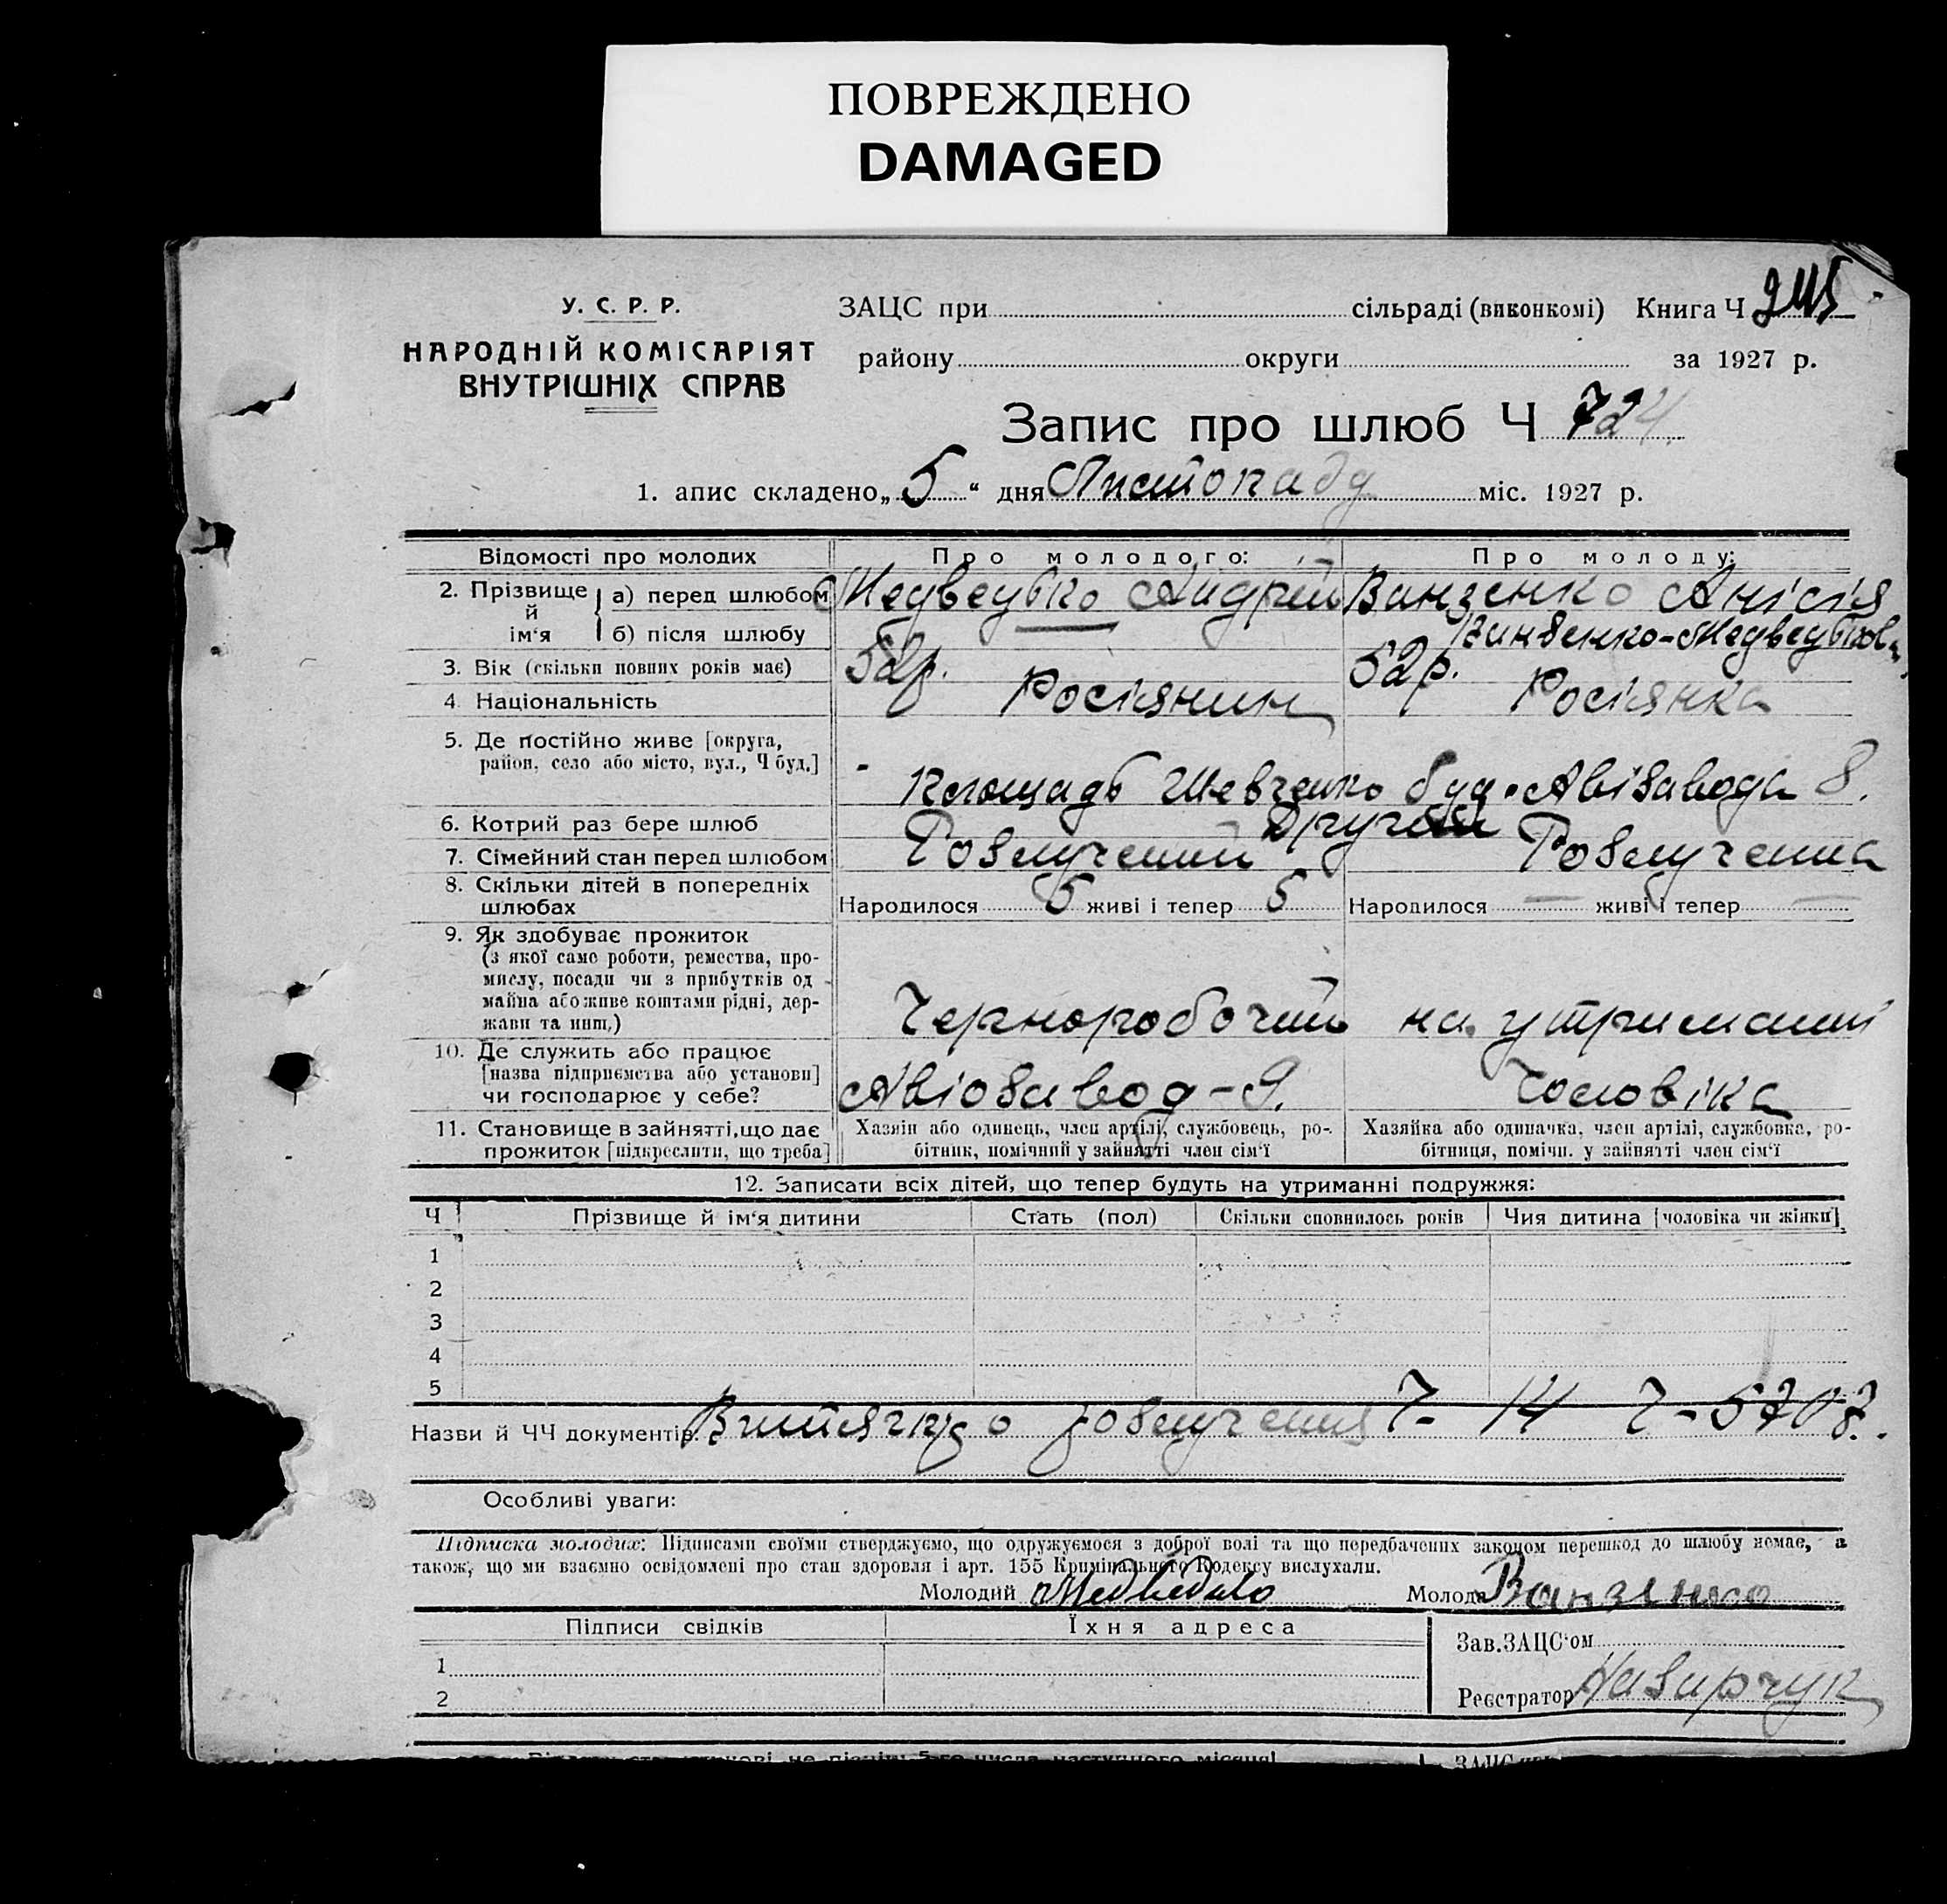 ПОВРЕЖДЕНО
DAMAGED
У. С. Р. Р.
НАРОДНІЙ КОМІСАРІЯТ
ВНУТРІШНІХ СПРАВ
ЗАЦС при сільраді (виконкомі) Книга Ч
району округи за 1927 р.
Запис про шлюб Ч 724
1. апис складено „5“ дня Листопаду міс. 1927 р.
Відомості про молодих Про молодого: Про молоду:
2. Прізвище й ім'я
а) перед шлюбом Медведько Андрій Ванзенко Анісія
б) після шлюбу
3. Вік (скільки повних років має) 52 р. 52 р.
4 Національність Росіянин Росіянка
5. Де постійно живе [округа,
район, село або місто, вул., Ч буд.]
площадь Шевченко буд. Авізавода 8.
6. Котрий раз бере шлюб Другий
7. Сімейний стан перед шлюбом Розлучений Розлучена
8. Скільки дітей в попередніх
шлюбах Народилося 5 живі і тепер 5 Народилося — живі і тепер —
9. Як здобуває прожиток
(з якої саме роботи, ремества, про-
мислу, посади чи з прибутків од
майна або живе коштами рідні, дер-
жави та инш.)
Чорноробочий на утриманні
10. Де служить або працює
[назва підприємства або установи]
чи господарює у себе?
Авіозавод-9. Чоловіка
11. Становище в зайнятті, що дає
прожиток [підкреслити, що треба]
Хазяїн або одинець, член артілі, службовець, ро-
бітник, помічний у зайнятті член сім'ї
Хазяйка або одиначка, член артілі, службовка, ро-
бітниця, помічн. у зайнятті член сім'ї
12. Записати всіх дітей, що тепер будуть на утриманні подружжя:
Ч Прізвище й ім'я дитини Стать (пол) Скільки сповнилось років Чия дитина [чоловіка чи жінки]
1
2
3
4
5
Назви й ЧЧ документів: Витяг о розлучения Ч- 14 Ч-5707.
Особливі уваги:
Підписка молодих: Підписами своїми стверджуємо, що одружуємося з доброї волі та що передбачених законом перешкод до шлюбу немає, а
також, що ми взаємно освідомлені про стан здоровля і арт. 155 Кримінального Кодексу вислухали.
Молодий Медведько Молода Ванзенко
Підписи свідків Їхня адреса
1
2
Зав. ЗАЦС'ом
Реєстратор Назарчук
не пізніш 5-го числа наступного місяця!